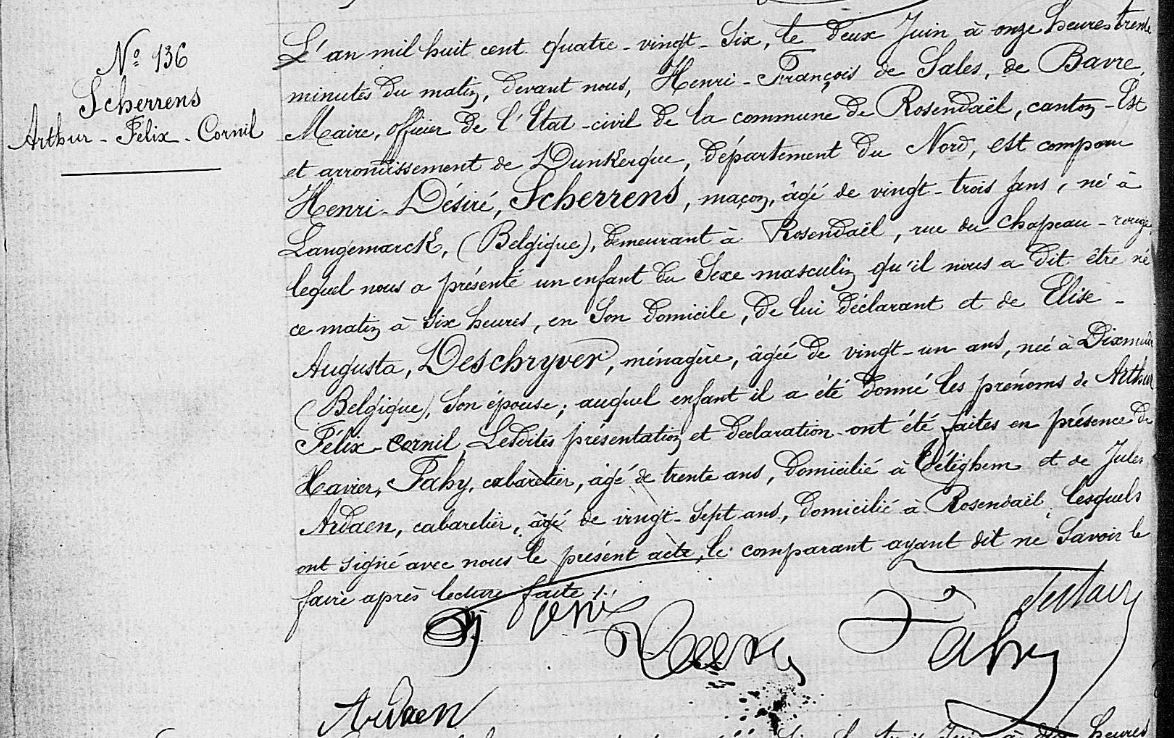 N° 136
Scherrens
Arthur - Félix - Cornil
L'an mil huit cent quatre-vingt-six, le deux Juin à onze heures trente
minutes du matin, devant nous, Henri-François de Sales, de Bavre,
Maire, officier de l'Etat-civil de la commune de Rosendaël, canton-Est
et arrondissement de Dunkerque, département du Nord, est comparu
Henri-Désiré, Scherrens, maçon, âgé de vingt-trois ans, né à
Langemarck, (Belgique), demeurant à Rosendaël, rue du chapeau-rouge
lequel nous a présenté un enfant du Sexe masculin qu'il nous a dit être né
ce matin à six heures, en son domicile, de lui déclarant et de Elise-
Augusta, Deschryver, ménagère, âgée de vingt-un ans, née à Dixmude
(Belgique), son épouse, auquel enfant il a été donné les prénoms de Arthur
Félix-Cornil, Lesdites présentation et déclaration ont été faites en présence de
Xavier, Fahy, cabaretier, âgé de trente ans, domicilié à Téteghem et de Jules
Ardaen, cabaretier, âgé de vingt-sept ans, domicilié à Rosendaël, lesquels
ont signé avec nous le présent acte, le comparant ayant dit ne savoir le
faire après lecture faite ./.
Fahy
Ardaen